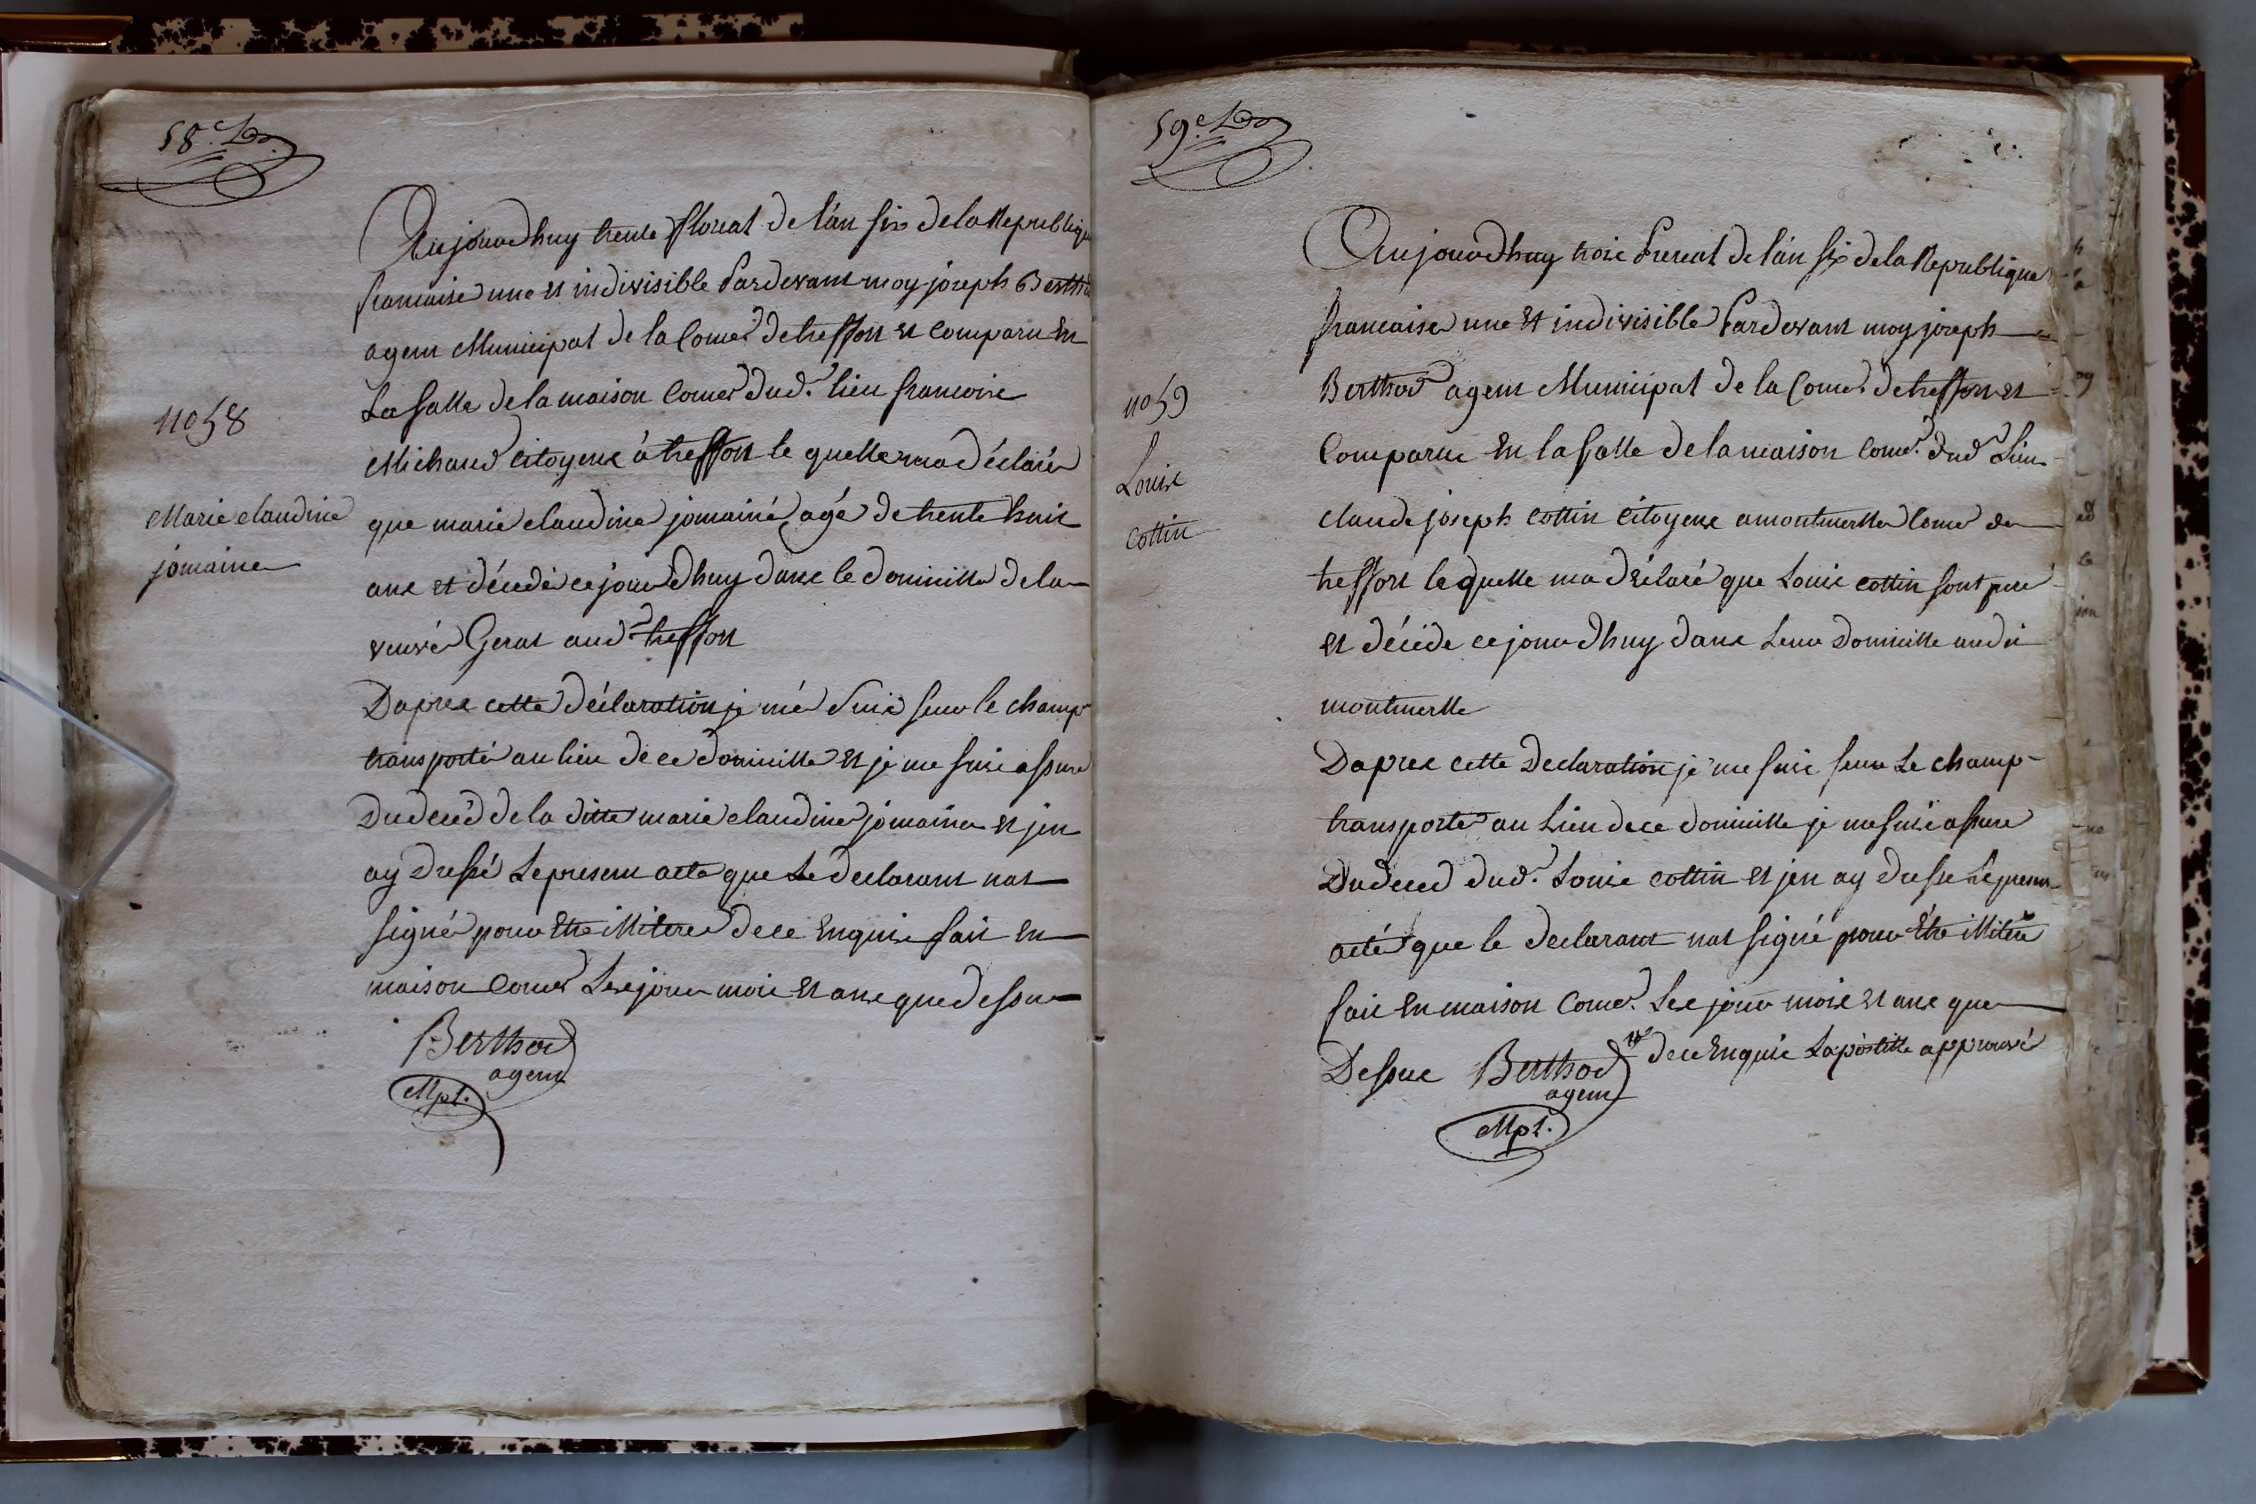 58.e
Aujourdhuy trente floreal de l'an six de la Republique
francaise une et indivisible Pardevant moy joseph Berthod
agent Municipal de la Come. de treffort et comparu En
La salle de la maison Come dud. lieu francois
Michaud citoyens à treffort le quelle ma déclaré
no 58
Marie claudine
jomaine
que marie claudine jomaine agé de trente huit
ans et décedé ce jourdhuy dans le domicille de la
veuve Gerat aud. treffort
Dapres cette déclaration je me suis seur le champ
transporté au lieu de ce domicille et je me suis assuré
Du deced de la ditte marie claudine jomaine et jen
ay dressé Le present acte que Le declarant nat
signé pour être illiteré de ce Enquis fait En
maison Come Les jour mois et ans que dessus
Berthod
agent
Mpl.
59.e
Aujourdhuy trois Prereal de l'an six de la Republique
francaise une et indivisible Pardevant moy joseph
Berthod agent Municipal de la Come. de treffort et
Comparu En la salle de la maison Come. dud Lieu
no 59
Louis
cottin
claude joseph cottin citoyens a montmerlle Come de
treffort le quelle ma déclaré que Louis cottin sont pere
et décéde ce jourdhuy dans Leur Domicille audit
montmerlle
Dapres cette Declaration je me suis seur Le champ
transporté au Lieu de ce domicille je me suis assure
Du deced dud. Louis cottin et jen ay dresse Le present
acte que le declarant nat signé pour être illiteré
fait En maison Come. Les jour mois et ans que
Dessus Berthod de ce Enquis Lapostille approuvé
agent
Mpl.